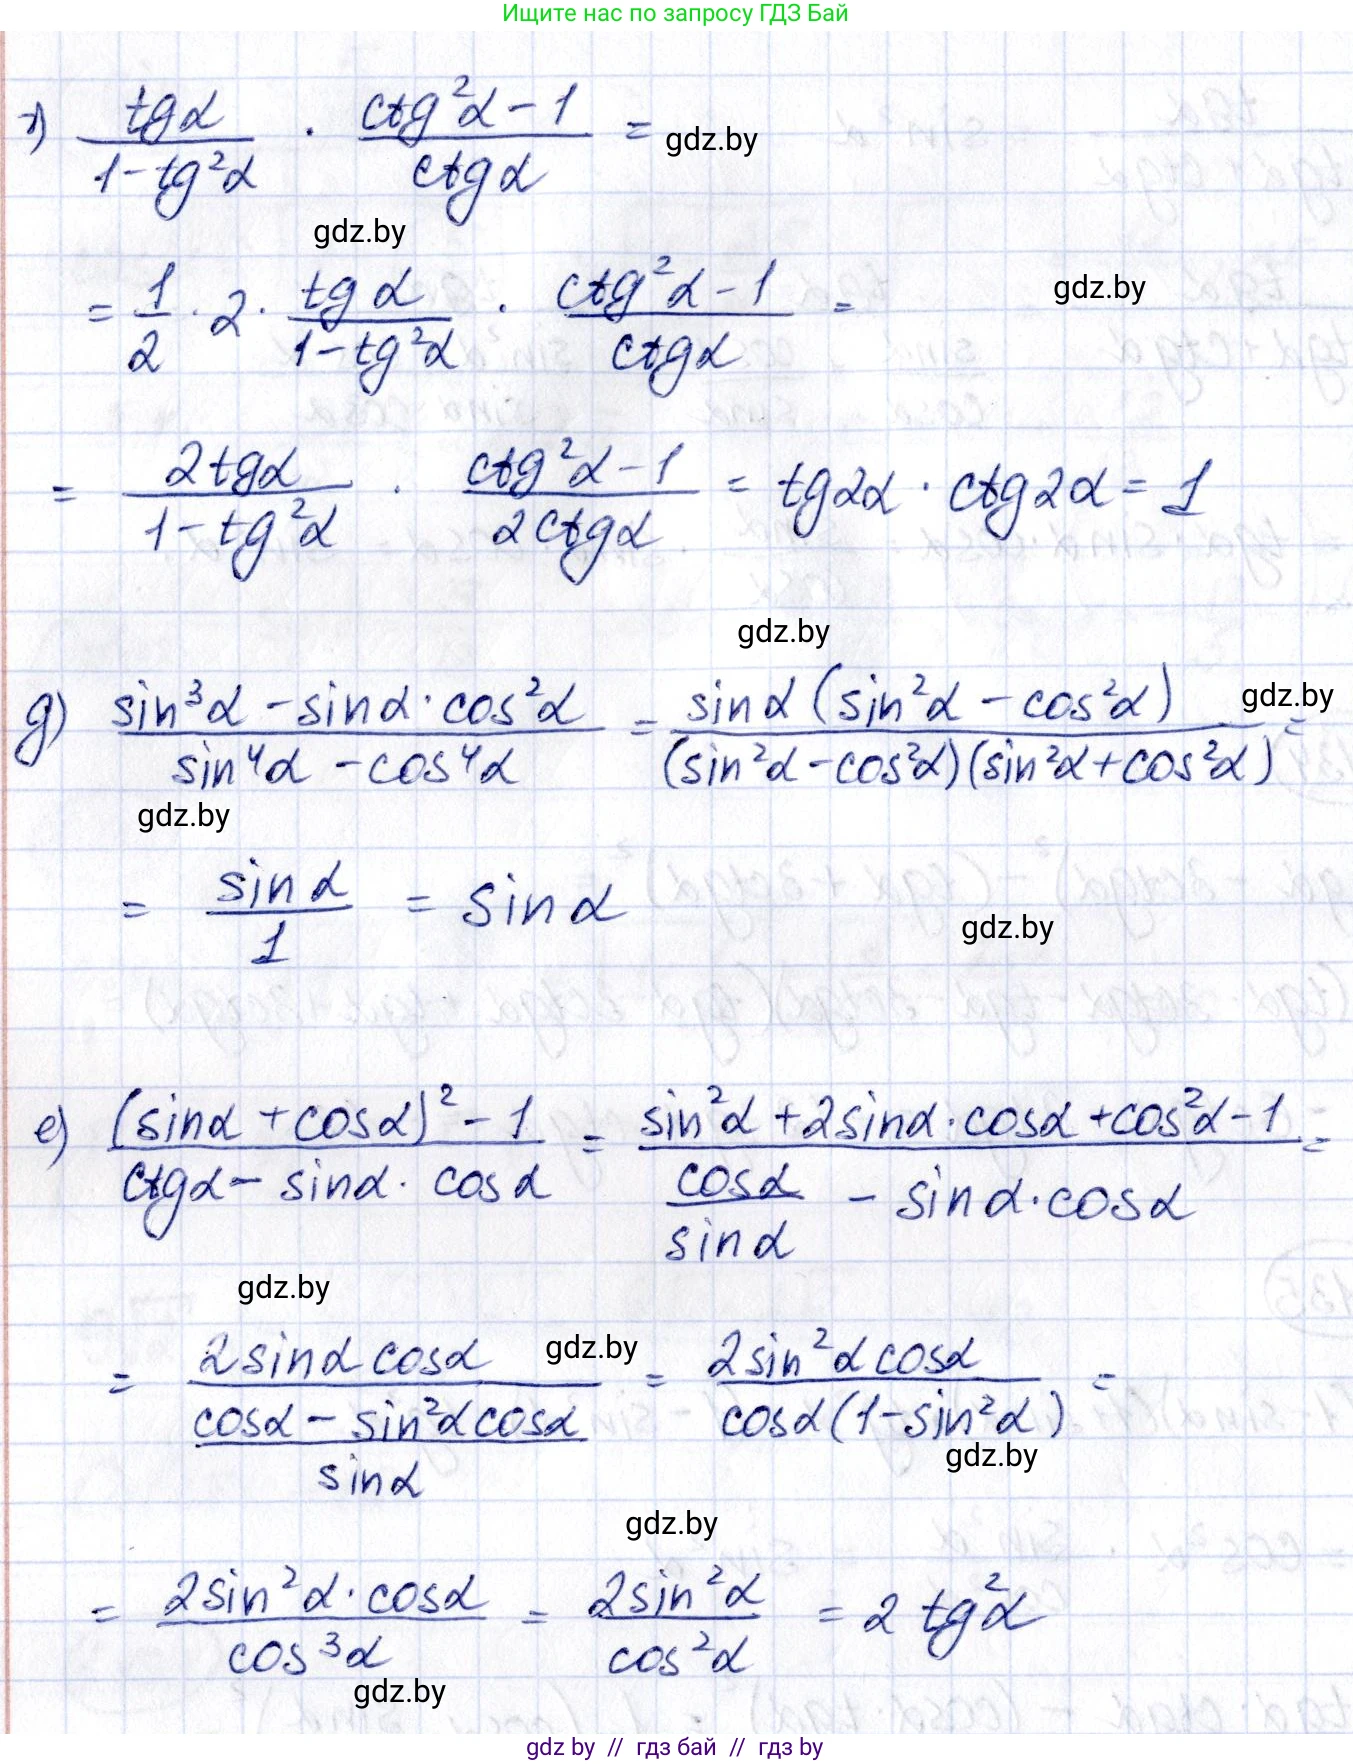 Ищите нас по запросу ГДЗ Бай
г) tgα / (1 - tg²α) · (ctg²α - 1) / ctgα =
gdz.by
gdz.by
= 1/2 · 2 · tgα / (1 - tg²α) · (ctg²α - 1) / ctgα =
gdz.by
= 2tgα / (1 - tg²α) · (ctg²α - 1) / 2ctgα = tg2α · ctg2α = 1
gdz.by
g) (sin³α - sinα · cos²α) / (sin⁴α - cos⁴α) = sinα (sin²α - cos²α) / (sin²α - cos²α)(sin²α + cos²α) =
gdz.by
gdz.by
= sinα / 1 = sinα
gdz.by
e) ((sinα + cosα)² - 1) / (ctgα - sinα · cosα) = (sin²α + 2sinα · cosα + cos²α - 1) / (cosα / sinα - sinα · cosα) =
gdz.by
= 2sinα cosα / ((cosα - sin²α cosα) / sinα) = 2sin²α cosα / cosα(1 - sin²α) =
gdz.by
gdz.by
gdz.by
= 2sin²α · cosα / cos³α = 2sin²α / cos²α = 2 tg²α
gdz.by
gdz by // гдз бай // гдз by